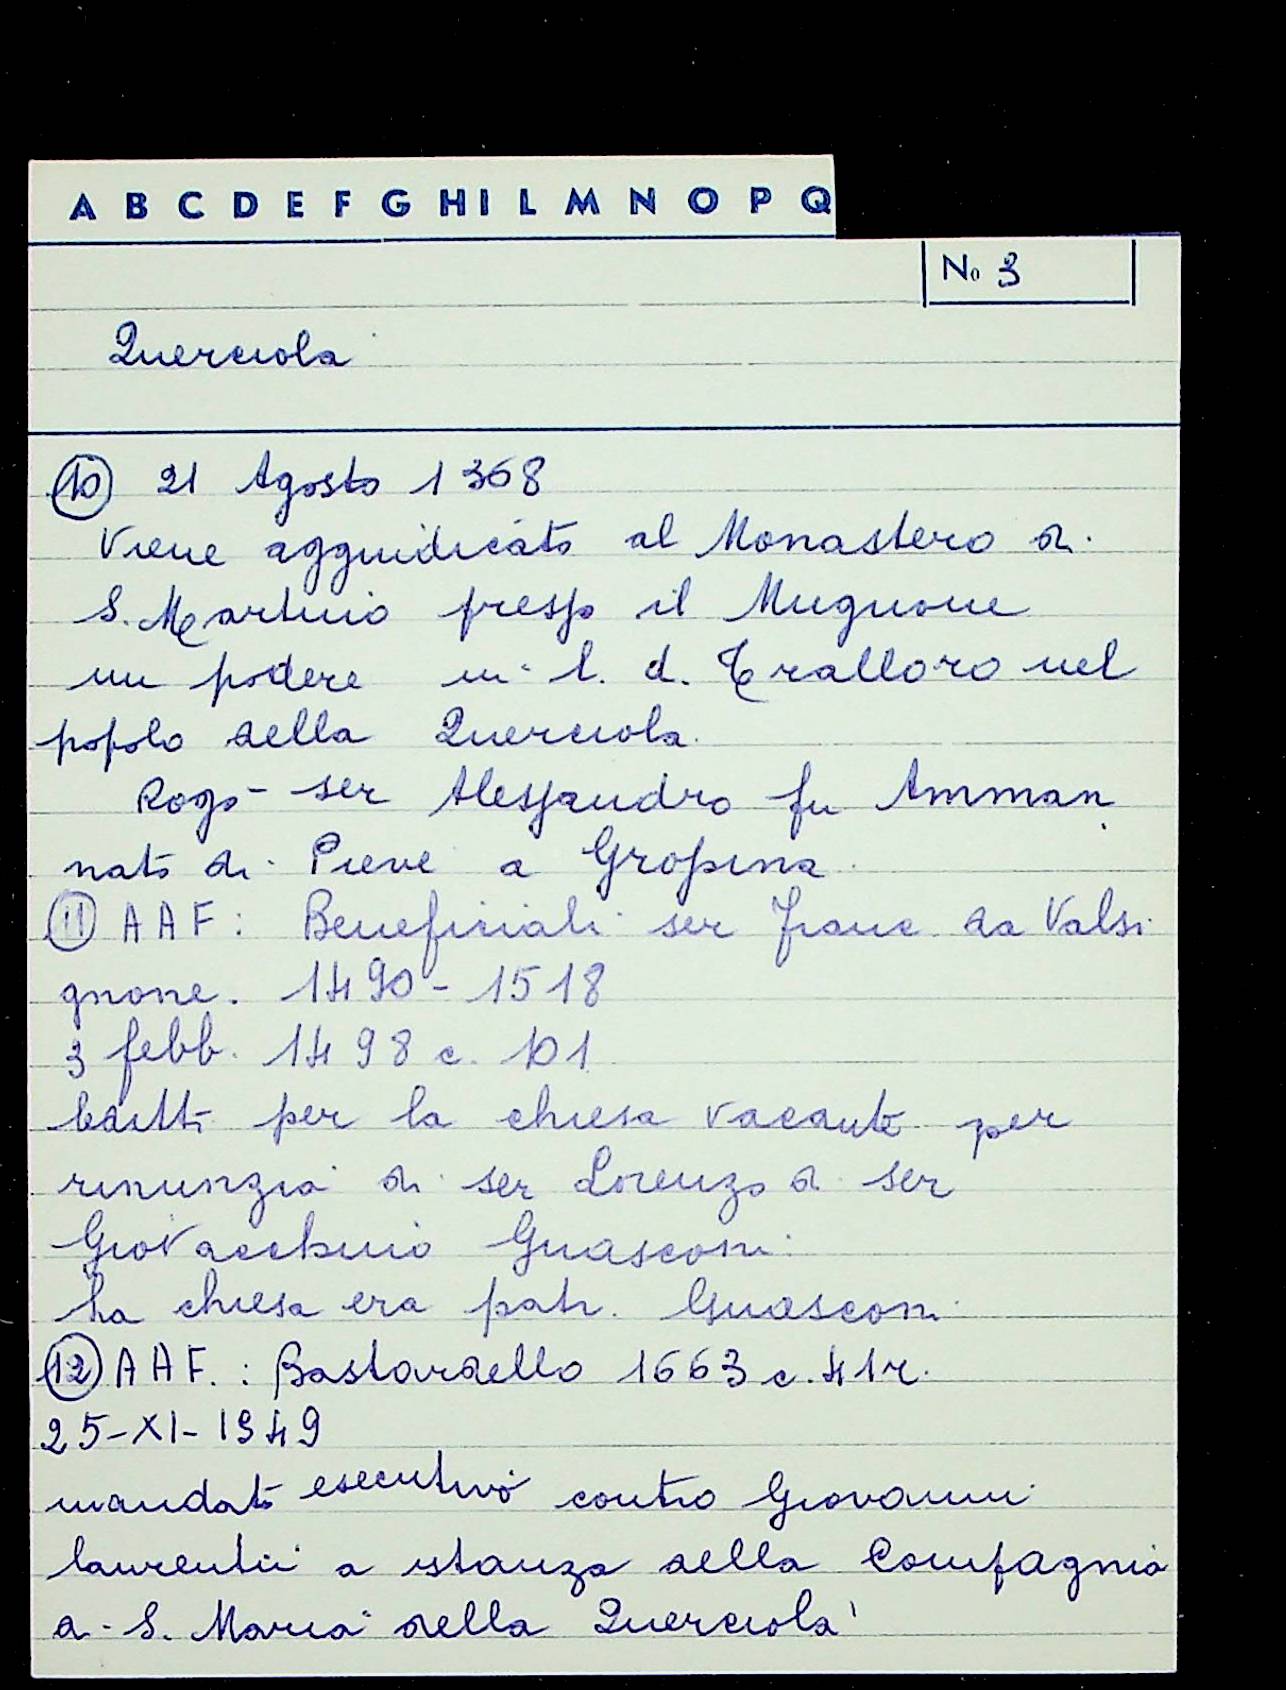 A B C D E F G H I L M N O P Q
No 3
Querciola
10 21 Agosto 1368
Viene aggiudicato al Monastero di
S. Martino presso il Mugnone
un podere in l. d. Tralloro nel
popolo della Querciola.
Rogo - ser Alessandro fu Amman
nato di Pieve a Gropina
11 AAF: Beneficiali ser Franc da Valsi
gnone. 1490 - 1518
3 febb. 1498 c. 101
per la chiesa vacante per
rinunzia di ser Lorenzo di ser
Giovacchino Guasconi
La chiesa era patr. Guasconi
12 AAF.: Bastardello 1663 c. 41r.
25-XI-1949
mandato esecutivo contro Giovanni
laurentii a istanza della Compagnia
di S. Maria della Querciola